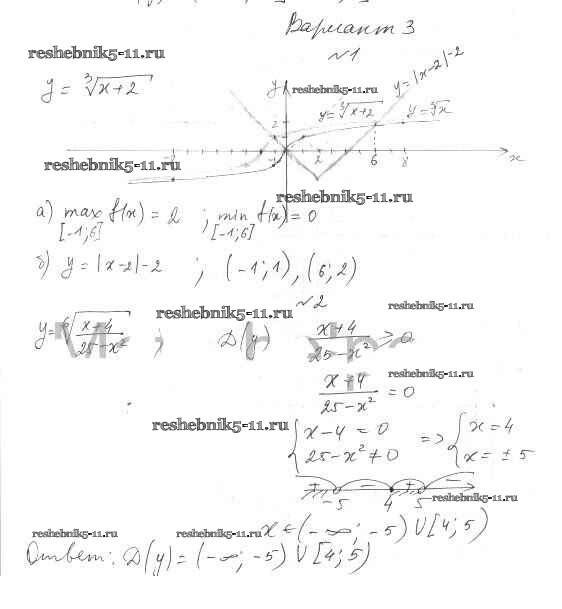 Вариант 3
reshebnik5-11.ru
№1
y = ∛(x+2)
y
reshebnik5-11.ru
y = |x-2|-2
y = ∛(x+2)
y = ∛x
2
reshebnik5-11.ru
-1
2
6
8
x
reshebnik5-11.ru
а) max f(x) = 2 ; min f(x) = 0
[-1;6] [-1;6]
б) y = |x-2|-2 ; (-1;1), (6;2)
№2
reshebnik5-11.ru
reshebnik5-11.ru
y = ⁶√((x+4)/(25-x²)) ; D(y) (x+4)/(25-x²) ≥ 0
reshebnik5-11.ru
(x+4)/(25-x²) = 0
reshebnik5-11.ru
{ x-4 = 0 => { x = 4
25-x² ≠ 0 x = ± 5
+ - + -
-5 4 5
reshebnik5-11.ru
reshebnik5-11.ru
reshebnik5-11.ru
x ∈ (-∞; -5) ∪ [4; 5)
Ответ: D(y) = (-∞; -5) ∪ [4; 5)